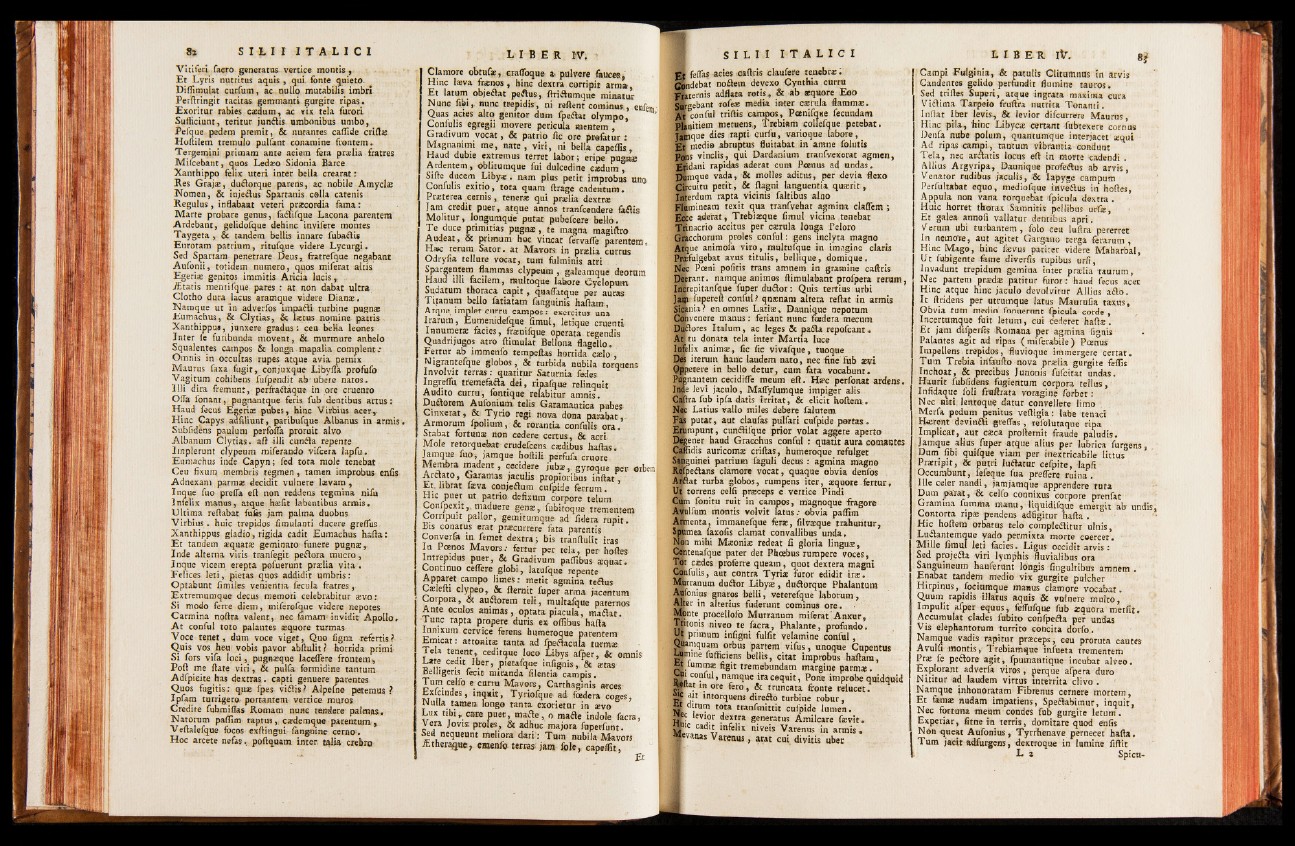 82 SILII ITALICI
Vitiferi sacro generatus vertice montis,
Et Lyris nutritus aquis, qui fonte quieto
Dissimulat cursum, ac nullo mutabilis imbri
Perstringit tacitas gemmanti gurgite ripas.
Exoritur rabies cædum, ac vix tela furori
Sufficiunt, teritur junctis umbonibus umbo,
Pesque pedem premit, & nutantes casside cristæ
Hostilem tremulo pulsant conamine frontem.
Tergemini primam ante aciem fera prælia fratres
Miscebant, quos Ledæo Sidonia Barce
Xanthippo felix uteri inter bella crearat:
Res Grajæ, ductorque parens, ac nobile Amyclæ
Nomen, & injectus Spartanis colla catenis
Regulus, inflabant veteri præcordia fama:
Marte probare genus, factisque Lacona parentem
Ardebant, gelidosque dehinc invisere montes
Taygeta, & tandem bellis innare subactis
Eurotam patrium, ritusque videre Lycurgi.
Sed Spartam penetrare Deus, fratresque negabant
Ausonii, totidem numero, quos miserat altis
Egeriæ genitos immitis Aricia lucis,
Ætatis mentisque pares: at non dabat ultra
Clotho dura lacus aramque videre Dianæ.
Namque ut in adversos impacti turbine pugnæ
Eumachus, & Clytias, & lætus nomine patris
Xanthippus, junxere gradus: ceu bella leones
Inter se furibunda movent, & murmure anhelo
Squalentes campos & longa mapalia complent:
Omnis in occultas rupes atque avia pernix
Maurus saxa fugit, conjuxque Libyssa profuso
Vagitum cohibens suspendit ab ubere natos.
Illi dira fremunt, perfractaque in ore cruento
Ossa sonant, pugnantque feris sub dentibus artus:
Haud secus Egeriæ pubes, hinc Virbius acer,
Hinc Capys adsiliunt, paribusque Albanus in armis.
Subsidens paulum perfossa proruit alvo
Albanum Clytias. ast illi cuncta repente
Implerunt clypeum miserando viscera lapsu.
Eumachus inde Capyn; sed tota mole tenebat
Ceu fixum membris tegmen, tamen improbus ensis
Adnexam parmæ decidit vulnere lævam,
Inque suo pressa est non reddens tegmina nisu
Infelix manus, atque hæsit labentibus armis.
Ultima restabat fusis jam palma duobus
Virbius. huic trepidos simulanti ducere gressus
Xanthippus gladio, rigida cadit Eumachus hasta:
Et tandem æquatæ geminato funere pugnæ,
Inde alterna viris transegit pectora mucro,
Inque vicem erepta posuerunt prælia vita.
Felices leti, pietas quos addidit umbris:
Optabunt similes venientia secula fratres,
Extremumque decus memori celebrabitur ævo:
Si modo ferre diem, miserosque videre nepotes
Carmina nostra valent, nec famam invidit Apollo.
At consul toto palantes æquore turmas
Voce tenet, dum voce viget, Quo signa refertis?
Quis vos heu vobis pavor abstulit? horrida primi
Si sors visa loci, pugnæque lacessere frontem,
Post me state viri, & pulsa formidine tantum
Adspicite has dextras. capti genuere parentes
Quos fugitis: quæ spes victis? Alpesne petemus?
Ipsam turrigero portantem vertice muros
Credite submissas Romam nunc tendere palmas.
Natorum passim raptus, cædemque parentum,
Vestalesque focos exstingui sanguine cerno.
Hoc arcete nefas. postquam inter talia crebro
LIBER IV.
Clamore obtusæ, crassoque a pulvere fauces,
Hinc læva frænos, hinc dextra corripit arma,
Et latum objectat pectus, strictumque minatur
Nunc sibi, nunc trepidis, ni restent cominus, ensem.
Quas acies alto genitor dum spectat olympo,
Consulis egregii movere pericula mentem,
Gradivum vocat, & patrio sic ore profatur:
Magnanimi me, nate, viri, ni bella capessis,
Haud dubie extremus terret labor; eripe pugnæ
Ardentem, oblitumque sui dulcedine cædum,
Siste ducem Libyæ. nam plus petit improbus uno
Consulis exitio, tota quam strage cadentum.
Præterea cernis, teneræ qui prælia dextræ
Jam credit puer, atque annos transcendere factis
Molitur, longumque putat pubescere bello.
Te duce primitias pugnæ, te magna magistro
Audeat, & primum hoc vincat servasse parentem.
Hæc rerum Sator. at Mavors in prælia currus
Odrysia tellure vocat, tum fulminis atri
Spargentem flammas clypeum, galeamque deorum
Haud illi facilem, multoque labore Cyclopum
Sudatum thoraca capit, quassatque per auras
Titanum bello satiatam sanguinis hastam,
Atque implet curru campos: exercitus una
Irarum, Eumenidesque simul, letique cruenti
Innumeræ facies, frænisque operata regendis
Quadrijugos atro stimulat Bellona flagello.
Fertur ab immenso tempestas horrida cælo,
Nigrantesque globos, & turbida nubila torquens
Involvit terras: quatitur Saturnia sedes
Ingressu tremefacta dei, ripasque relinquit
Audito curru, fontique relabitur amnis.
Ductorem Ausonium telis Garamantica pubes
Cinxerat, & Tyrio regi nova dona parabat,
Armorum spolium, & rorantia consulis ora.
Stabat fortunæ non cedere certus, & acri
Mole retorquebat crudescens cædibus hastas.
Jamque suo, jamque hostili perfusa cruore
Membra madent, cecidere jubæ, gyroque per orbem
Arctato, Garamas jaculis propioribus instat,
Et librat sæva conjectum cuspide ferrum.
Hic puer ut patrio defixum corpore telum
Conspexit, maduere genæ, subitoque trementem
Corripuit pallor, gemitumque ad sidera rupit.
Bis conatus erat præcurrere fata parentis
Conversa in semet dextra; bis transtulit iras
In Pœnos Mavors: fertur per tela, per hostes
Intrepidus puer, & Gradivum passibus æquat.
Continuo cessere globi, latusque repente
Apparet campo limes: metit agmina tectus
Cælesti clypeo, & sternit super arma jacentum
Corpora, & auctorem teli, multasque paternos
Ante oculos animas, optata piacula, mactat.
Tunc rapta propere duris ex ossibus hasta
Innixum cervice ferens humeroque parentem
Emicat: attonitæ tanta ad spectacula turmæ
Tela tenent, ceditque loco Libys asper, & omnis
Late cedit Iber, pietasque insignis, & ætas
Belligeris fecit miranda silentia campis.
Tum celso e curru Mavors, Carthaginis arces
Exscindes, inquit, Tyriosque ad fœdera coges,
Nulla tamen longo tanta exorietur in ævo
Lux tibi, care puer, macte, o macte indole sacra,
Vera Jovis proles, & adhuc majora supersunt.
Sed nequeunt meliora dari: Tum nubila Mavors
Ætheraque, emenso terras jam sole, capessit,
Et
SILII ITALICI
Et fessas acies castris clausere tenebræ.
Condebat noctem devexo Cynthia curru
Fraternis adflata rotis, & ab æquore Eoo
Surgebant roseæ media inter cærula flammæ.
At consul tristis campos, Pœnisque secundam
Planitiem metuens, Trebiam collesque petebat.
Jamque dies rapti cursu, varioque labore,
Et medio abruptus fluitabat in amne solutis
Pons vinclis, qui Dardanium transvexerat agmen,
Eridani rapidas aderat cum Pœnus ad undas.
Dumque vada, & molles aditus, per devia flexo
Circuitu petit, & stagni languentia quærit,
Interdum rapta vicinis saltibus alno
Flumineam texit qua transvehat agmina classem;
Ecce aderat, Trebiæque simul vicina tenebat
Trinacrio accitus per cærula longa Peloro
Gracchorum proles consul: gens inclyta magno
Atque animosa viro, multusque in imagine claris
Præfulgebat avus titulis, bellique, domique.
Nec Pœni positis trans amnem in gramine castris
Deerant. namque animos stimulabant prospera rerum,
Increpitansque super ductor: Quis tertius urbi
Jam superest consul? quænam altera restat in armis
Sicania? en omnes Latiæ, Daunique nepotum
Convenere manus: feriant nunc fœdera mecum
Ductores Italum, ac leges & pacta reposcant.
At tu donata tela inter Martia luce
Infelix animæ, sic sic vivasque, tuoque
Des iterum hanc laudem nato, nec fine sub ævi
Oppetere in bello detur, cum fata vocabunt.
Pugnantem cecidisse meum est. Hæc personat ardens.
Inde levi jaculo, Massylumque impiger alis
Castra sub ipsa datis irritat, & elicit hostem.
Nec Latius vallo miles debere salutem
Fas putat, aut clausas pulsari cuspide portas.
Erumpunt, cunctisque prior volat aggere aperto
Degener haud Gracchus consul: quatit aura comantes
Cassidis auricomæ cristas, humeroque refulget
Sanguinei patrium saguli decus: agmina magno
Respectans clamore vocat, quaque obvia densos
Arctat turba globos, rumpens iter, æquore fertur.
Ut torrens celsi præceps e vertice Pindi
Cum sonitu ruit in campos, magnoque fragore
Avulsum montis volvit latus: obvia passim
Armenta, immanesque feræ, silvæque trahuntur,
Spumea saxosis clamat convallibus unda.
Non mihi Mæoniæ redeat si gloria linguæ,
Centenasque pater det Phœbus rumpere voces,
Tot cædes proferre queam, quot dextera magni
Consulis, aut contra Tyriæ furor edidit iræ.
Murranum ductor Libyæ, ductorque Phalantum
Ausonius gnaros belli, veteresque laborum,
Alter in alterius fuderunt cominus ore.
Monte procelloso Murranum miserat Anxur,
Tritonis niveo te sacra, Phalante, profundo.
Ut primum insigni fulsit velamine consul,
Quamquam orbus partem visus, unoque Cupentus
Lumine sufficiens bellis, citat improbus hastam,
Et summæ figit tremebundam margine parmæ.
Cui consul, namque ira coquit, Pone improbe quidquid
Restat in ore fero, & truncata fronte relucet.
Sic ait intorquens directo turbine robur,
Et dirum tota transmittit cuspide lumen.
Nec levior dextra generatus Amilcare sævit.
Huic cadit infelix niveis Varenus in armis,
Mevanas Varenus, arat cui divitis uber
LIBER IV. 83
Campi Fulginia, & patulis Clitumnus in arvis
Candentes gelido perfundit flumine tauros.
Sed tristes Superi, atque ingrata maxima cura
Victima Tarpeio frustra nutrita Tonanti.
Instat Iber levis, & levior discurrere Maurus,
Hinc pila, hinc Libycæ certant subtexere cornus
Densa nube polum, quantumque interjacet æqui
Ad ripas campi, tantum vibrantia condunt
Tela, nec arctatis locus est in morte cadendi.
Allius Argyripa, Daunique profectus ab arvis,
Venator rudibus jaculis, & Iapyge campum
Persultabat equo, mediosque invectus in hostes,
Appula non vana torquebat spicula dextra.
Huic horret thorax Samnitis pellibus ursæ,
Et galea annosi vallatur dentibus apri.
Verum ubi turbantem, solo ceu lustra pererret
In nemore, aut agitet Gargano terga ferarum,
Hinc Mago, hinc sævus pariter videre Maharbal,
Ut subigente fame diversis rupibus ursi,
Invadunt trepidum gemina inter prælia taurum,
Nec partem prædæ patitur furor: haud secus acer
Hinc atque hinc jaculo devolvitur Allius acto.
It stridens per utrumque latus Maurusia taxus,
Obvia tum medio sonuerunt spicula corde,
Incertumque fuit letum, cui cederet hastæ.
Et jam dispersis Romana per agmina signis
Palantes agit ad ripas (miserabile) Pœnus
Impellens trepidos, fluvioque immergere certat.
Tum Trebia infausto nova prælia gurgite fessis
Inchoat, & precibus Junonis suscitat undas.
Haurit subsidens fugientum corpora tellus,
Infidaque soli frustrata voragine sorbet:
Nec niti lentoque datur convellere limo
Mersa pedum penitus vestigia: labe tenaci
Hærent devincti gressus, resolutaque ripa
Implicat, aut cæca prosternit fraude paludis.
Jamque alius super atque alius per lubrica surgens,
Dum sibi quisque viam per inextricabile littus
Præripit, & putri luctatur cespite, lapsi
Occumbunt, seseque sua pressere ruina.
Ille celer nandi, jamjamque apprendere tuta
Dum parat, & celso connixus corpore prensat
Gramina summa manu, liquidisque emergit ab undis,
Contorta ripæ pendens adfigitur hasta.
Hic hostem orbatus telo complectitur ulnis,
Luctantemque vado permixta morte coercet.
Mille simul leti facies. Ligus occidit arvis:
Sed projecta viri lymphis fluvialibus ora
Sanguineum hauserunt longis singultibus amnem.
Enabat tandem medio vix gurgite pulcher
Hirpinus, sociumque manus clamore vocabat.
Quum rapidis illatus aquis & vulnere multo,
Impulit asper equus, fessusque sub æquora mersit.
Accumulat clades subito conspecta per undas
Vis elephantorum turrito concita dorso.
Namque vadis rapitur præceps, ceu proruta cautes
Avulsi montis, Trebiamque insueta trementem
Præ se pectore agit, spumantique incubat alveo.
Explorant adversa viros, perque aspera duro
Nititur ad laudem virtus interrita clivo.
Namque inhonoratam Fibrenus cernere mortem,
Et famæ nudam impatiens, Spectabimur, inquit,
Nec fortuna meum condes sub gurgite letum.
Experiar, sitne in terris, domitare quod ensis
Non queat Ausonius, Tyrrhenave pernecet hasta.
Tum jacit adsurgens, dextroque in lumine sistit
L 2 Spicu-